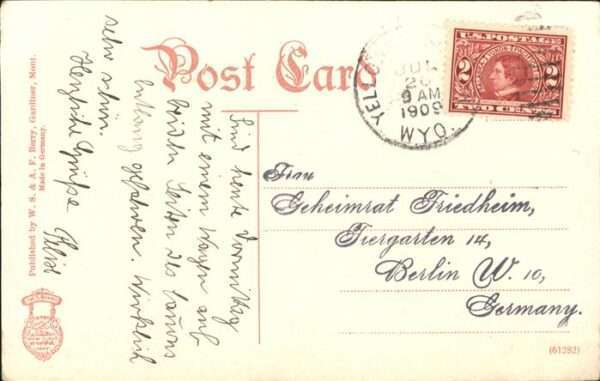 Post Card
U.S. POSTAGE
2 2
TWO CENTS
YEL
JUL
26
9 AM
1909
WYO.
Sind heute Vormittag
mit einem Wagen auf
beiden Seiten des Cañons
entlang gefahren. Wirklich
sehr schön.
Herzliche Grüße
Frau
Geheimrat Friedheim,
Tiergarten 14,
Berlin W. 10,
Germany.
Published by W. S. & A. F. Berry, Gardiner, Mont.
Made in Germany.
(61282)